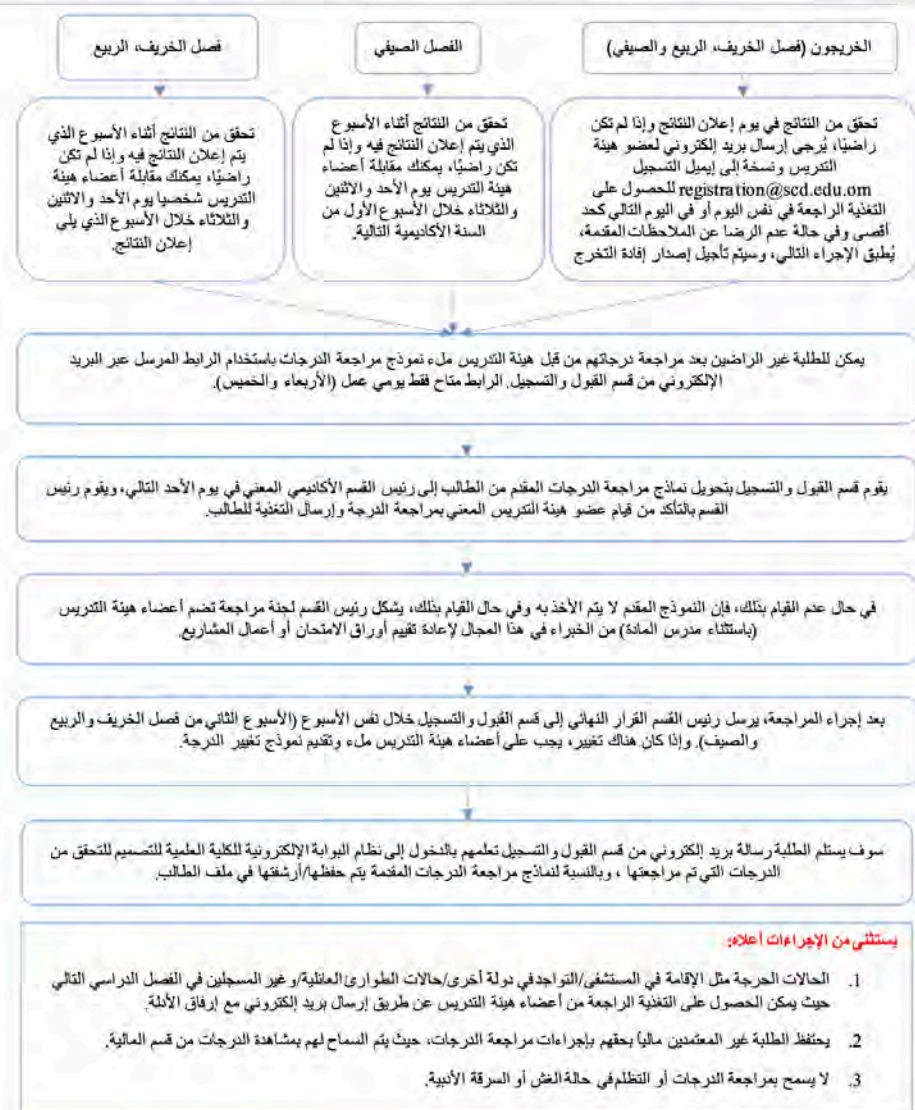 الخريجون (فصل الخريف، الربيع والصيفي)
الفصل الصيفي
فصل الخريف، الربيع
تحقق من النتائج في يوم إعلان النتائج وإذا لم تكن
راضيًا، يُرجى إرسال بريد إلكتروني لعضو هيئة
التدريس ونسخة إلى إيميل التسجيل
registration@scd.edu.om للحصول على
التغذية الراجعة في نفس اليوم أو في اليوم التالي كحد
أقصى وفي حالة عدم الرضا عن الملاحظات المقدمة،
يُطبق الإجراء التالي، وسيتم تأجيل إصدار إفادة التخرج
تحقق من النتائج أثناء الأسبوع
الذي يتم إعلان النتائج فيه وإذا لم
تكن راضيًا، يمكنك مقابلة أعضاء
هيئة التدريس يوم الأحد والاثنين
والثلاثاء خلال الأسبوع الأول من
السنة الأكاديمية التالية.
تحقق من النتائج أثناء الأسبوع الذي
يتم إعلان النتائج فيه وإذا لم تكن
راضيًا، يمكنك مقابلة أعضاء هيئة
التدريس شخصيا يوم الأحد والاثنين
والثلاثاء خلال الأسبوع الذي يلي
إعلان النتائج.
يمكن للطلبة غير الراضين بعد مراجعة درجاتهم من قبل هيئة التدريس ملء نموذج مراجعة الدرجات باستخدام الرابط المرسل عبر البريد
الإلكتروني من قسم القبول والتسجيل. الرابط متاح فقط يومي عمل (الأربعاء والخميس).
يقوم قسم القبول والتسجيل بتحويل نماذج مراجعة الدرجات المقدم من الطالب إلى رئيس القسم الأكاديمي المعني في يوم الأحد التالي، ويقوم رئيس
القسم بالتأكد من قيام عضو هيئة التدريس المعني بمراجعة الدرجة وإرسال التغذية للطالب.
في حال عدم القيام بذلك، فإن النموذج المقدم لا يتم الأخذ به وفي حال القيام بذلك، يشكل رئيس القسم لجنة مراجعة تضم أعضاء هيئة التدريس
(باستثناء مدرس المادة) من الخبراء في هذا المجال لإعادة تقييم أوراق الامتحان أو أعمال المشاريع.
بعد إجراء المراجعة، يرسل رئيس القسم القرار النهائي إلى قسم القبول والتسجيل خلال نفس الأسبوع (الأسبوع الثاني من فصل الخريف والربيع
والصيف). وإذا كان هناك تغيير، يجب على أعضاء هيئة التدريس ملء وتقديم نموذج تغيير الدرجة.
سوف يستلم الطلبة رسالة بريد إلكتروني من قسم القبول والتسجيل تعلمهم بالدخول إلى نظام البوابة الإلكترونية للكلية العلمية للتصميم للتحقق من
الدرجات التي تم مراجعتها ، وبالنسبة لنماذج مراجعة الدرجات المقدمة يتم حفظها/أرشفتها في ملف الطالب.
يستثنى من الإجراءات أعلاه:
1. الحالات الحرجة مثل الإقامة في المستشفى/التواجد في دولة أخرى/حالات الطوارئ العائلية/وغير المسجلين في الفصل الدراسي التالي
حيث يمكن الحصول على التغذية الراجعة من أعضاء هيئة التدريس عن طريق إرسال بريد إلكتروني مع إرفاق الأدلة.
2. يحتفظ الطلبة غير المعتمدين مالياً بحقهم بإجراءات مراجعة الدرجات، حيث يتم السماح لهم بمشاهدة الدرجات من قسم المالية.
3. لا يسمح بمراجعة الدرجات أو التظلم في حالة الغش أو السرقة الأدبية.